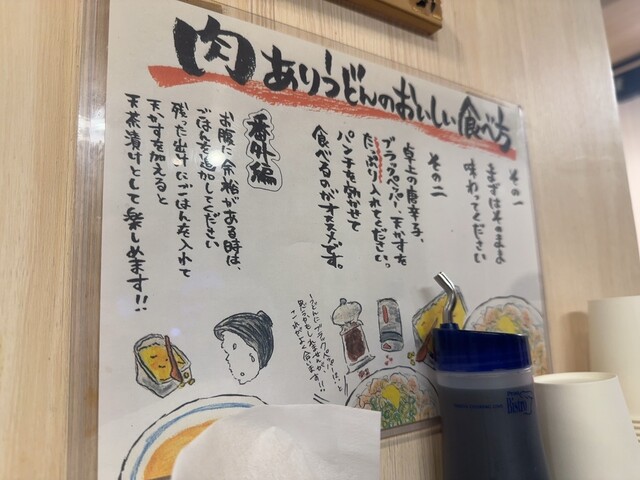 肉ありうどんのおいしい食べ方
その一
まずはそのまま
味わってください
その二
卓上の唐辛子、
ブラックペッパー、天かすを
たっぷり入れてください。
パンチを効かせて
食べるのがオススメです。
番外編
お腹に余裕がある時は、
ごはんを追加してください
残った出汁にごはんを入れて
天かすを加えると
天茶漬けとして楽しめます!!
Bistro